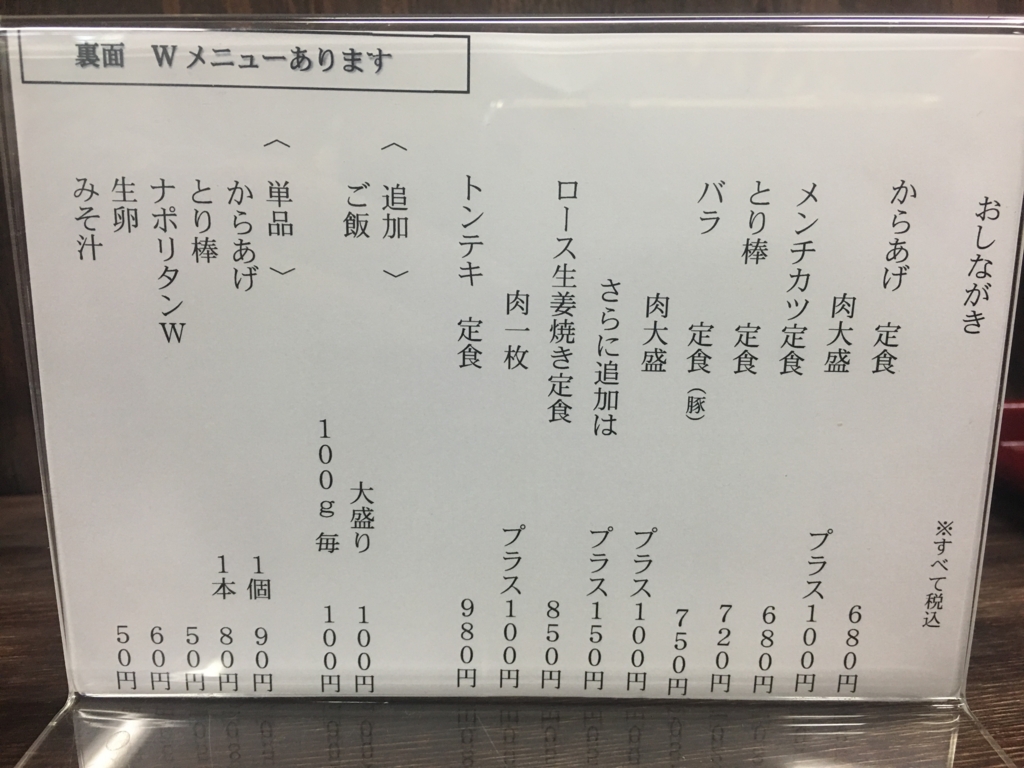 裏面　Wメニューあります
おしながき
※すべて税込
からあげ　定食　680円
肉大盛　プラス100円
メンチカツ定食　680円
とり棒　定食　720円
バラ　定食（豚）　750円
肉大盛　プラス100円
さらに追加は　プラス150円
ロース生姜焼き定食　850円
肉一枚　プラス100円
トンテキ　定食　980円
〈　追加　〉
ご飯　大盛り　100円
100g毎　100円
〈　単品　〉
からあげ　1個　90円
とり棒　1本　80円
ナポリタンW　50円
生卵　60円
みそ汁　50円